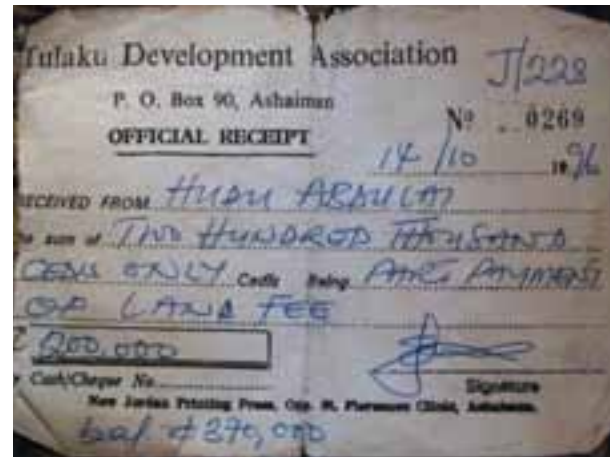 Tulaku Development Association
J/228
P. O. Box 90, Ashaiman
Nº 0269
OFFICIAL RECEIPT
14/10 1996
RECEIVED FROM HUDU ABDULAI
the sum of TWO HUNDRED THOUSAND
CEDIS ONLY Cedis Being PART PAYMENT
OF LAND FEE
₵ 200,000
Cash/Cheque No.
Signature
New Jordan Printing Press, Opp. St. Clinic, Ashaiman.
bal ¢ 390,000